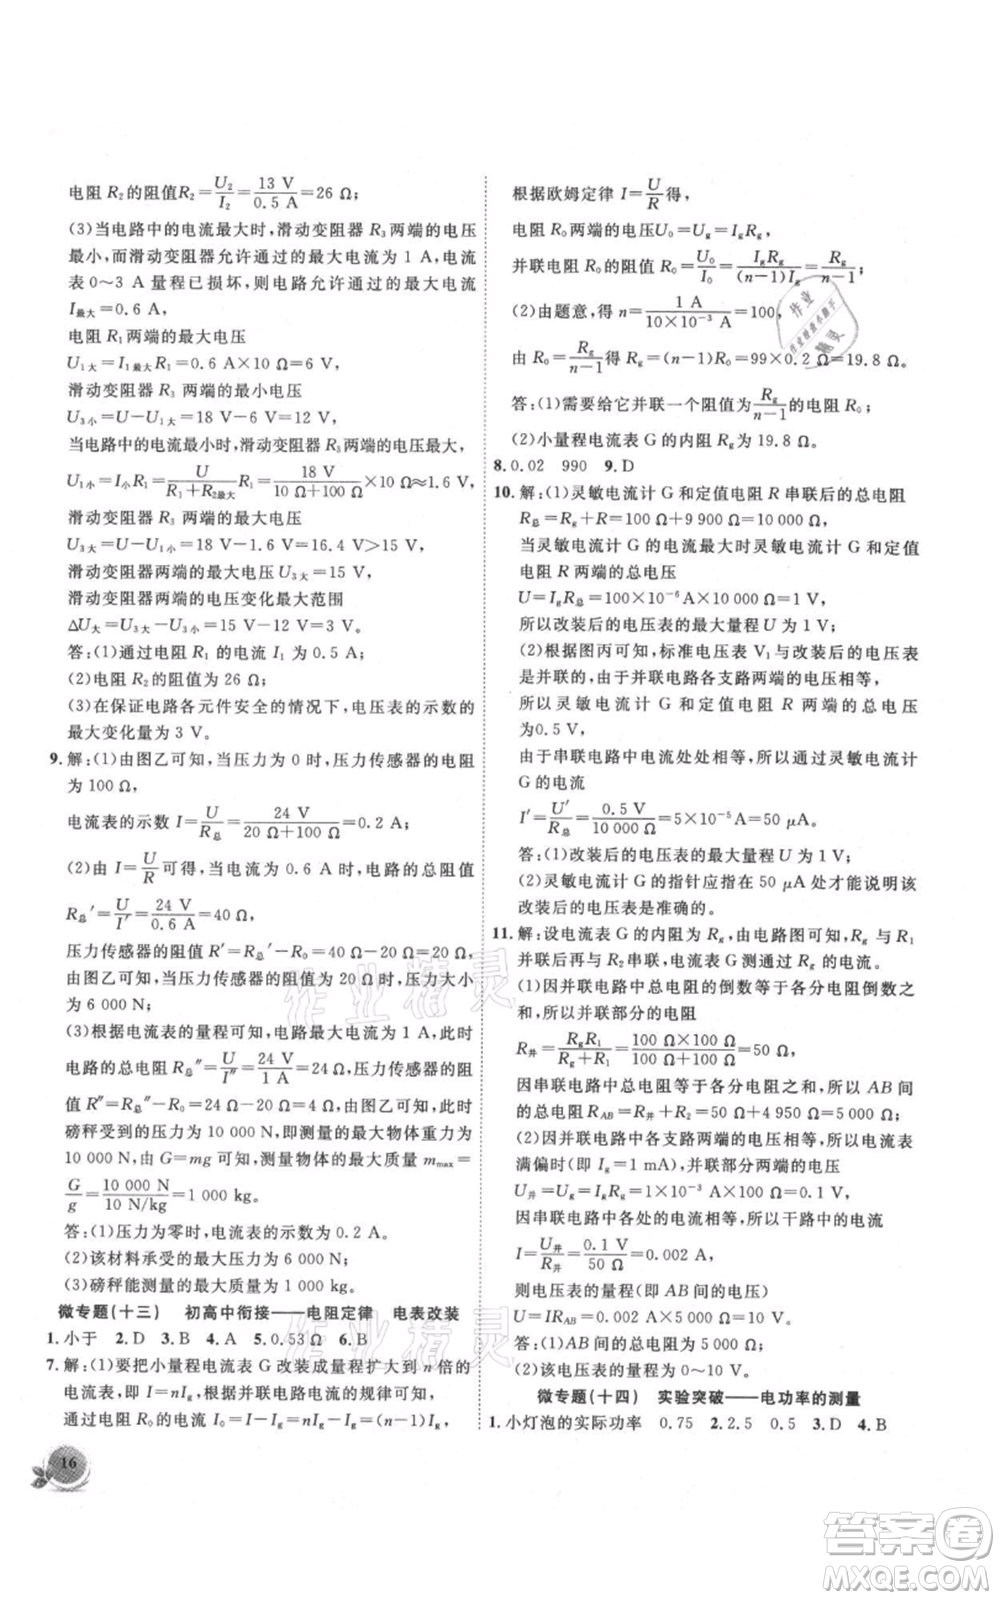 电阻 R₂的阻值R₂=U₂/I₂=13 V/0.5 A=26 Ω;
(3)当电路中的电流最大时,滑动变阻器 R₃两端的电压
最小,而滑动变阻器允许通过的最大电流为 1 A,电流
表 0~3 A 量程已损坏,则电路允许通过的最大电流
I最大=0.6 A,
电阻 R₁两端的最大电压
U₁大=I最大R₁=0.6 A×10 Ω=6 V,
滑动变阻器 R₃ 两端的最小电压
U₃小=U-U₁大=18 V-6 V=12 V,
当电路中的电流最小时,滑动变阻器 R₃两端的电压最大,
U₁小=I小R₁=U/(R₁+R₂最大)R₁=18 V/(10 Ω+100 Ω)×10 Ω≈1.6 V,
滑动变阻器 R₃ 两端的最大电压
U₃大=U-U₁小=18 V-1.6 V=16.4 V>15 V,
滑动变阻器两端的最大电压U₃大=15 V,
滑动变阻器两端的电压变化最大范围
ΔU大=U₃大-U₃小=15 V-12 V=3 V。
答:(1)通过电阻 R₁的电流 I 为 0.5 A;
(2)电阻 R₂的阻值为 26 Ω;
(3)在保证电路各元件安全的情况下,电压表的示数的
最大变化量为 3 V。
9.解:(1)由图乙可知,当压力为 0时,压力传感器的电阻
为100 Ω,
电流表的示数 I=U/R总=24 V/(20 Ω+100 Ω)=0.2 A;
(2)由 I=U/R可得,当电流为 0.6 A 时,电路的总阻值
R总′=U/I′=24 V/0.6 A=40 Ω,
压力传感器的阻值 R′=R总′-R₀=40 Ω-20 Ω=20 Ω,
由图乙可知,当压力传感器的阻值为 20 Ω时,压力大小
为 6 000 N;
(3)根据电流表的量程可知,电路最大电流为 1 A,此时
电路的总电阻 R总″=U/I″=24 V/1 A=24 Ω,压力传感器的阻
值 R″=R总″-R₀=24 Ω-20 Ω=4 Ω,由图乙可知,此时
磅秤受到的压力为 10 000 N,即测量物体的最大重力为
10 000 N,由 G=mg 可知,测量物体的最大质量 mmax=
G/g=10 000 N/10 N/kg=1 000 kg。
答:(1)压力为零时,电流表的示数为 0.2 A。
(2)该材料承受的最大压力为 6 000 N;
(3)磅秤能测量的最大质量为 1 000 kg。
微专题(十三) 初高中衔接——电阻定律 电表改装
1.小于 2.D 3.B 4.A 5.0.53Ω 6.B
7.解:(1)要把小量程电流表 G 改装成量程扩大到 n 倍的
电流表,即 I=nIg,根据并联电路电流的规律可知,通过
电阻 R₀的电流为 I₀=I-Ig=nIg-Ig=(n-1)Ig,
16
根据欧姆定律 I=U/R得,
电阻 R₀两端的电压U₀=Ug=IgRg,
并联电阻 R₀的阻值 R₀=U₀/I₀=IgRg/(n-1)Ig=Rg/(n-1);
(2)由题意,得 n=1 A/10×10⁻³ A=100,
由 R₀=Rg/(n-1)得 Rg=(n-1)R₀=99×0.2 Ω=19.8 Ω。
答:(1)需要给它并联一个阻值为Rg/(n-1)的电阻 R₀;
(2)小量程电流表 G 的内阻 Rg为 19.8 Ω。
8.0.02 990 9.D
10.解:(1)灵敏电流计 G 和定值电阻 R 串联后的总电阻
R总=Rg+R=100 Ω+9 900 Ω=10 000 Ω,
当灵敏电流计 G 的电流最大时灵敏电流计 G 和定值
电阻 R 两端的总电压
U=IgR总=100×10⁻⁶A×10 000 Ω=1 V,
所以改装后的电压表的最大量程 U为 1 V;
(2)根据图丙可知,标准电压表 V₁与改装后的电压表
是并联的,由于并联电路各支路两端的电压相等,
所以灵敏电流计 G 和定值电阻 R 两端的总电压
为0.5 V,
由于串联电路中电流处处相等,所以通过灵敏电流计
G 的电流
I′=U′/R总=0.5 V/10 000 Ω=5×10⁻⁵A=50 μA。
答:(1)改装后的电压表的最大量程 U 为 1 V;
(2)灵敏电流计 G 的指针应指在 50 μA 处才能说明该
改装后的电压表是准确的。
11.解:设电流表 G 的内阻为 Rg,由电路图可知,Rg与 R₁
并联后再与 R₂串联,电流表 G 测量通过 Rg的电流。
(1)因并联电路中总电阻的倒数等于各分电阻倒数之
和,所以并联部分的电阻
R并=RgR₁/(Rg+R₁)=100 Ω×100 Ω/(100 Ω+100 Ω)=50 Ω,
因串联电路中总电阻等于各分电阻之和,所以 AB 间
的总电阻 RAB=R并+R₂=50 Ω+4 950 Ω=5 000 Ω;
(2)因并联电路中各支路两端的电压相等,所以电流表
满偏时(即 Ig=1 mA),并联部分两端的电压
U并=Ug=IgRg=1×10⁻³ A×100 Ω=0.1 V,
因串联电路中各处的电流相等,所以干路中的电流
I=U并/R并=0.1 V/50 Ω=0.002 A,
则电压表的量程(即 AB 间的电压)
U=IRAB=0.002 A×5 000 Ω=10 V。
答:(1)AB间的总电阻为 5 000 Ω;
(2)该电压表的量程为 0~10 V。
微专题(十四) 实验突破——电功率的测量
1.小灯泡的实际功率 0.75 2.2.5 0.5 3.D 4.B
作业精灵
作业精灵
答案卷
MXQE.COM